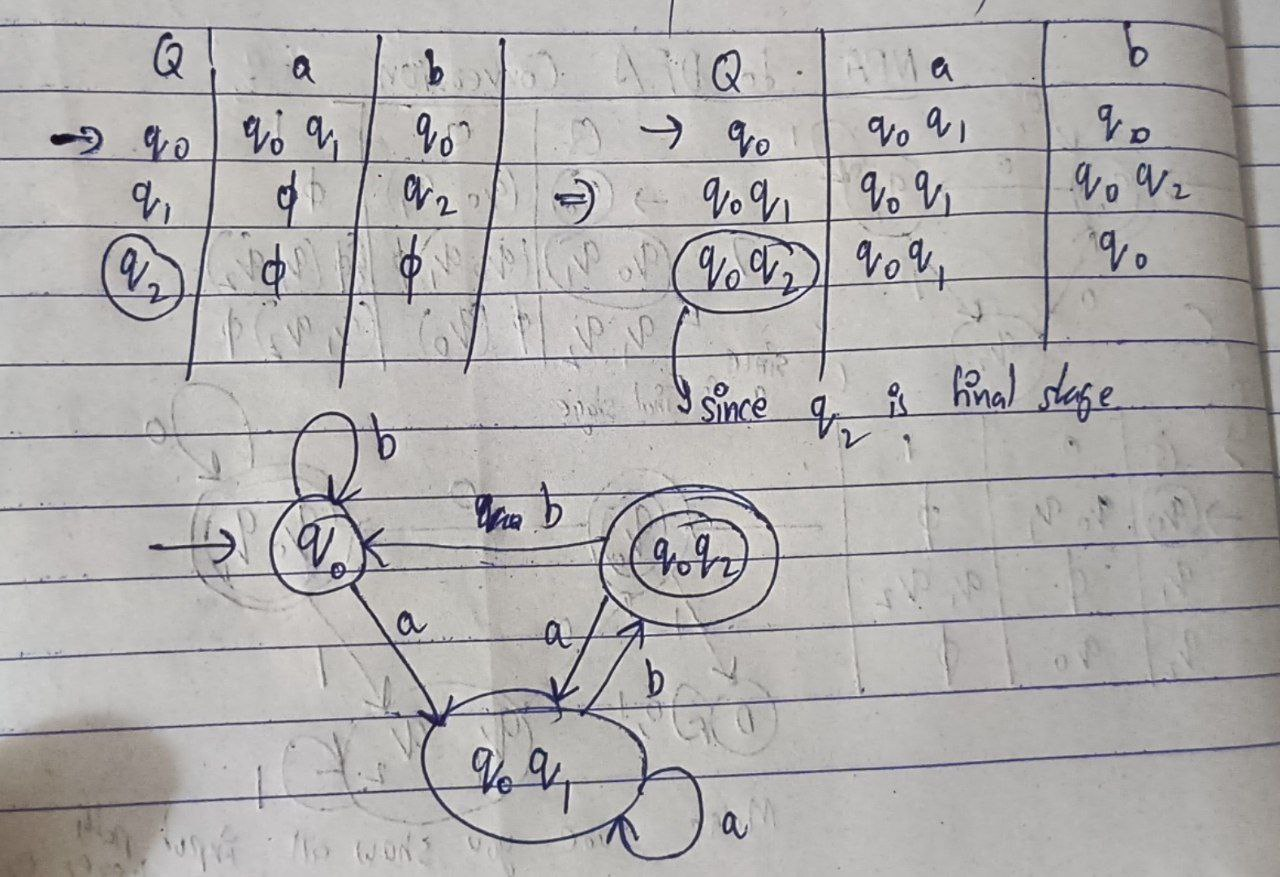 Q a b Q a b
→ q₀ q₀ q₁ q₀ → q₀ q₀ q₁ q₀
q₁ ϕ q₂ ⇒ q₀ q₁ q₀ q₁ q₀ q₂
q₂ ϕ ϕ q₀ q₂ q₀ q₁ q₀
since q₂ is final stage
b
b
q₀ q₀ q₂
a a
b
q₀ q₁
a